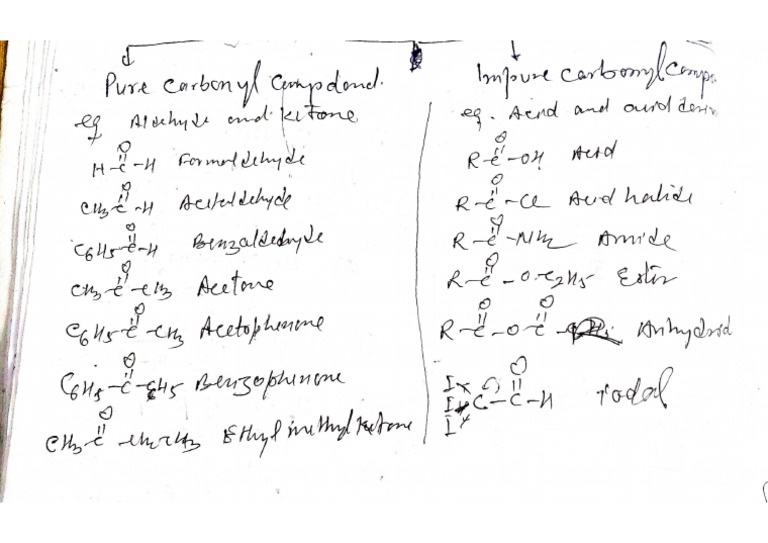 Pure Carbonyl Compdond.
eg Aldehyde and ketone
H-C-H Formaldehyde
O
CH3-C-H Acetaldehyde
O
C6H5-C-H Benzaldehyde
O
CH3-C-CH3 Acetone
O
C6H5-C-CH3 Acetophenone
O
C6H5-C-C6H5 Benzophinone
O
CH3-C-CH2CH3 Ethyl methyl ketone
O
Impure Carbonyl Comp.
eg. Acid and acid deriv
O
R-C-OH Acid
O
R-C-Cl Acid halide
O
R-C-NH2 Amide
O
R-C-O-C2H5 Ester
O O
R-C-O-C- Anhydrid
O
I
I C-C-H Iodal
I